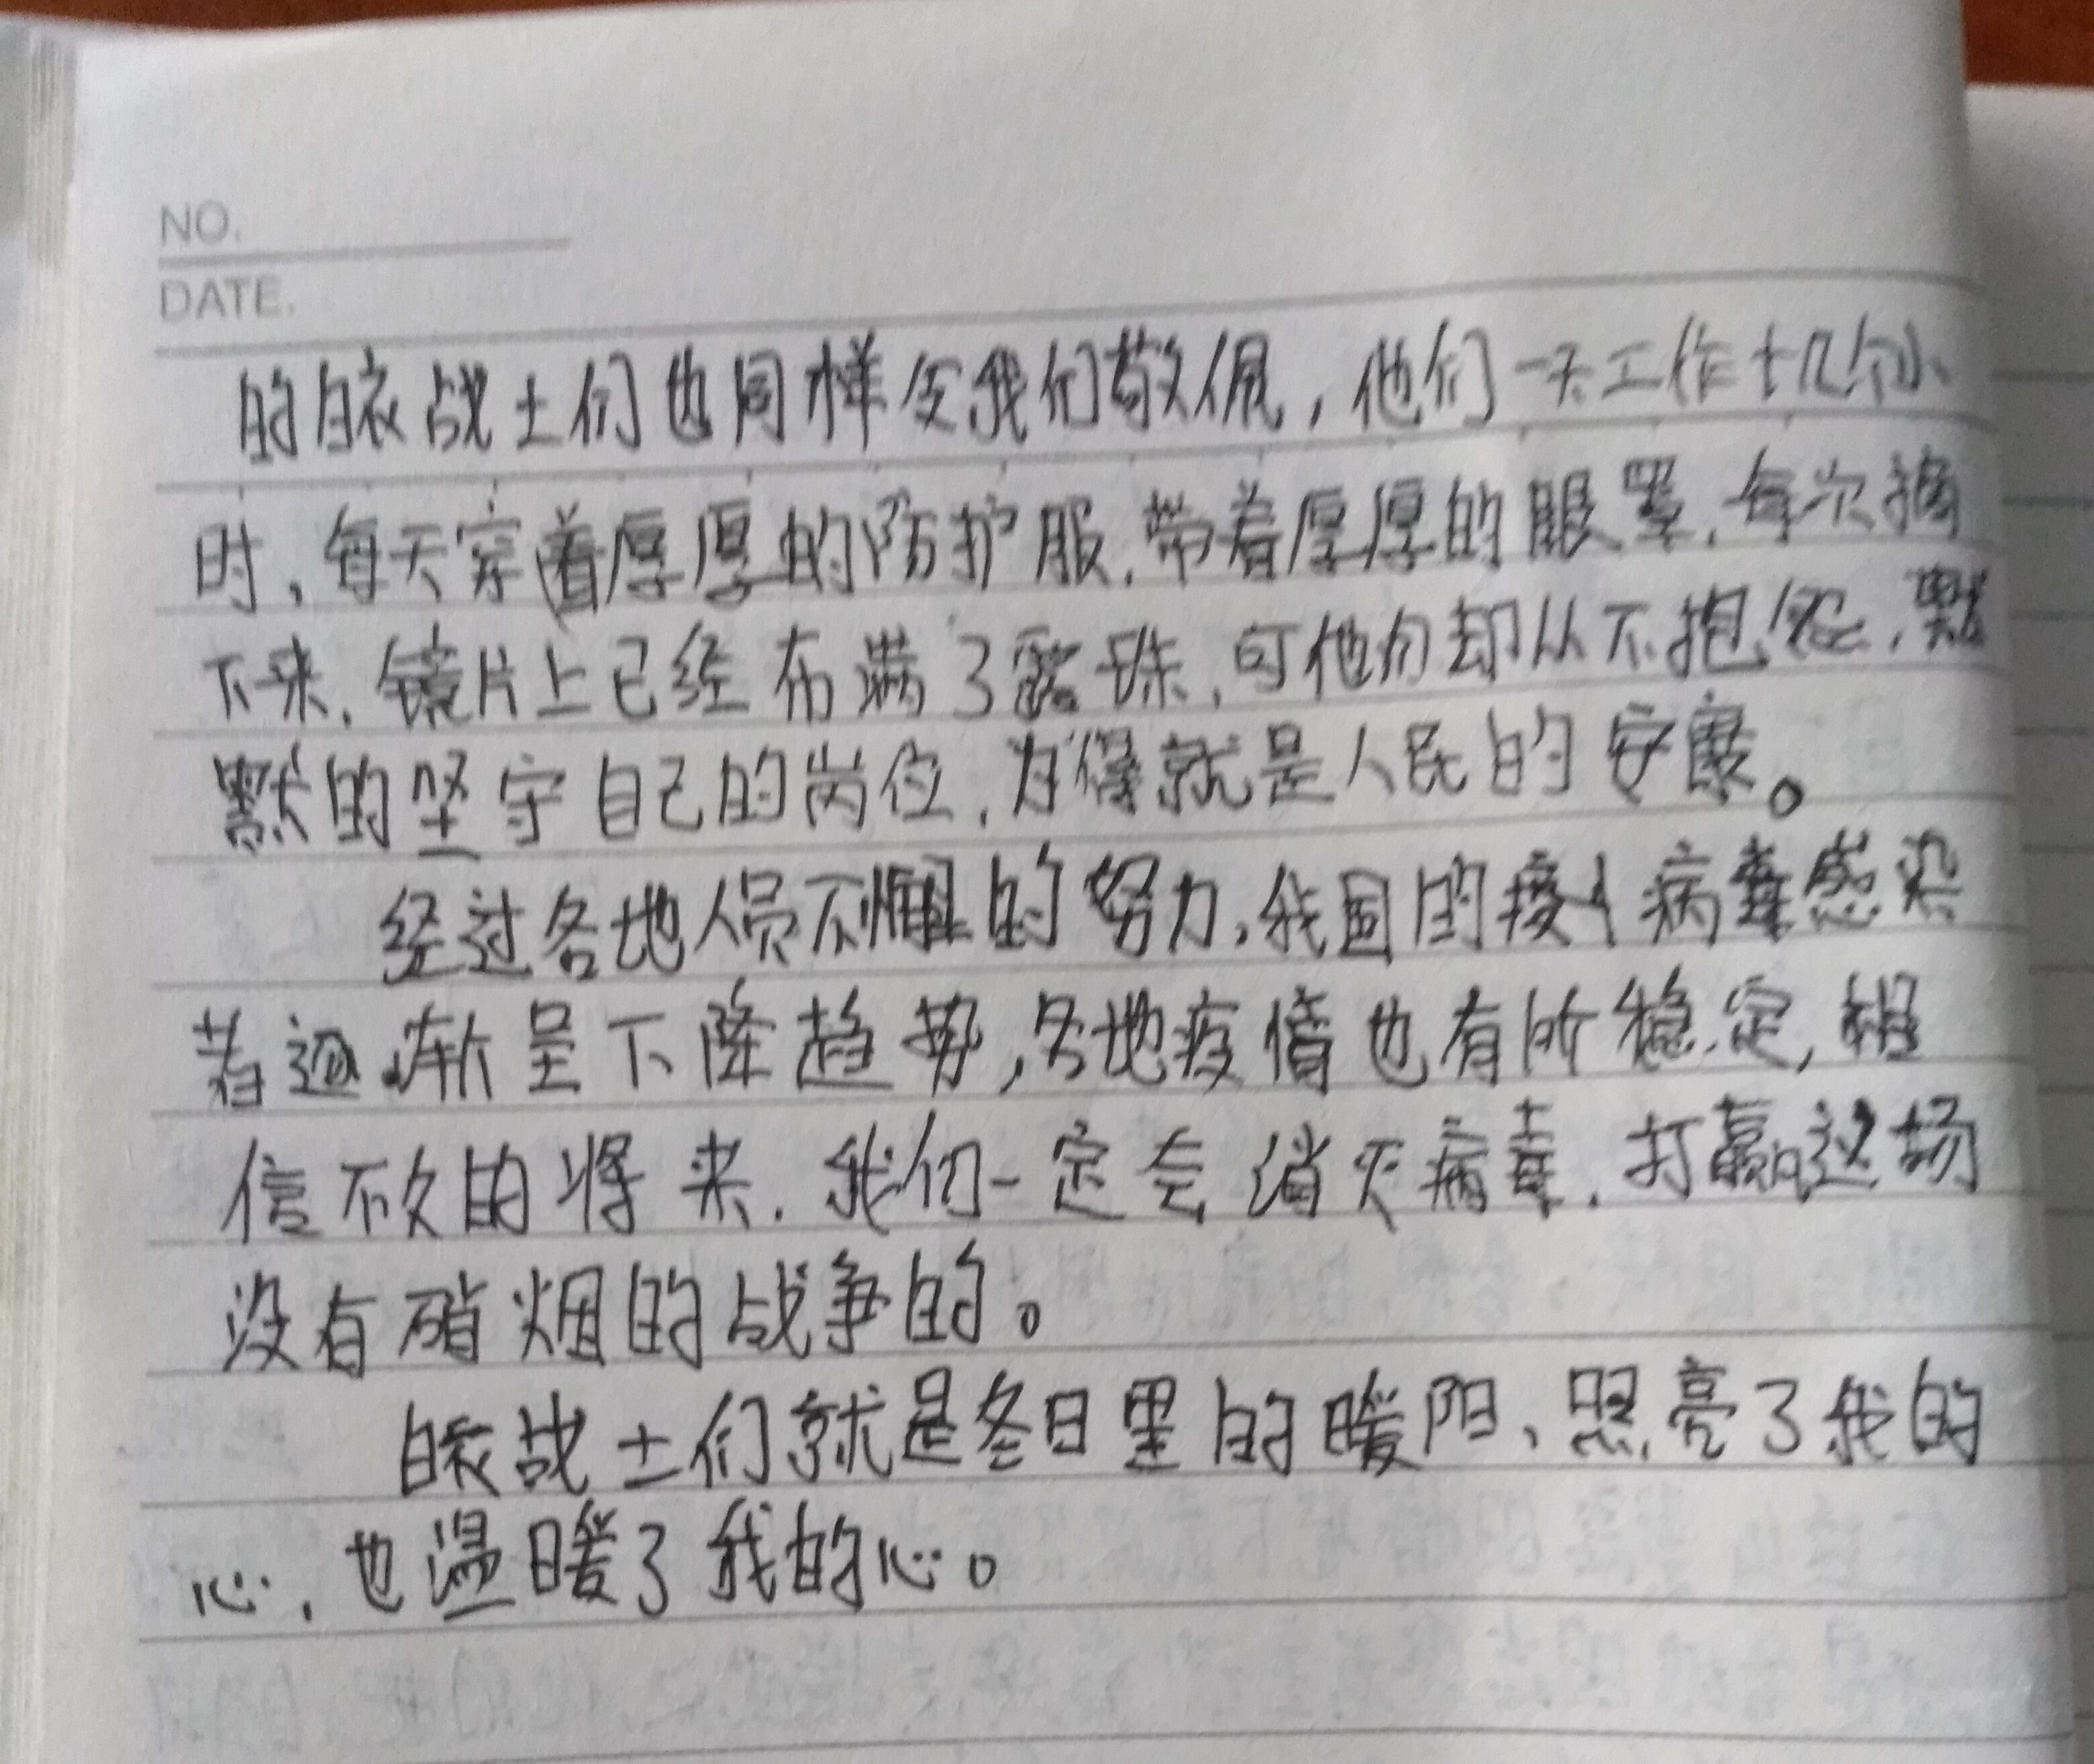 NO.
DATE.
的白衣战士们也同样受我们敬佩，他们一天工作十几个小
时，每天穿着厚厚的防护服，带着厚厚的眼罩，每次摘
下来，镜片上已经布满了露珠，可他们却从不抱怨，默
默的坚守自己的岗位，为得就是人民的安康。
经过各地人员不懈的努力，我国的病毒感染
者逐渐呈下降趋势，各地疫情也有所稳定，相
信不久的将来，我们一定会消灭病毒，打赢这场
没有硝烟的战争的。
白衣战士们就是冬日里的暖阳，照亮了我的
心，也温暖了我的心。